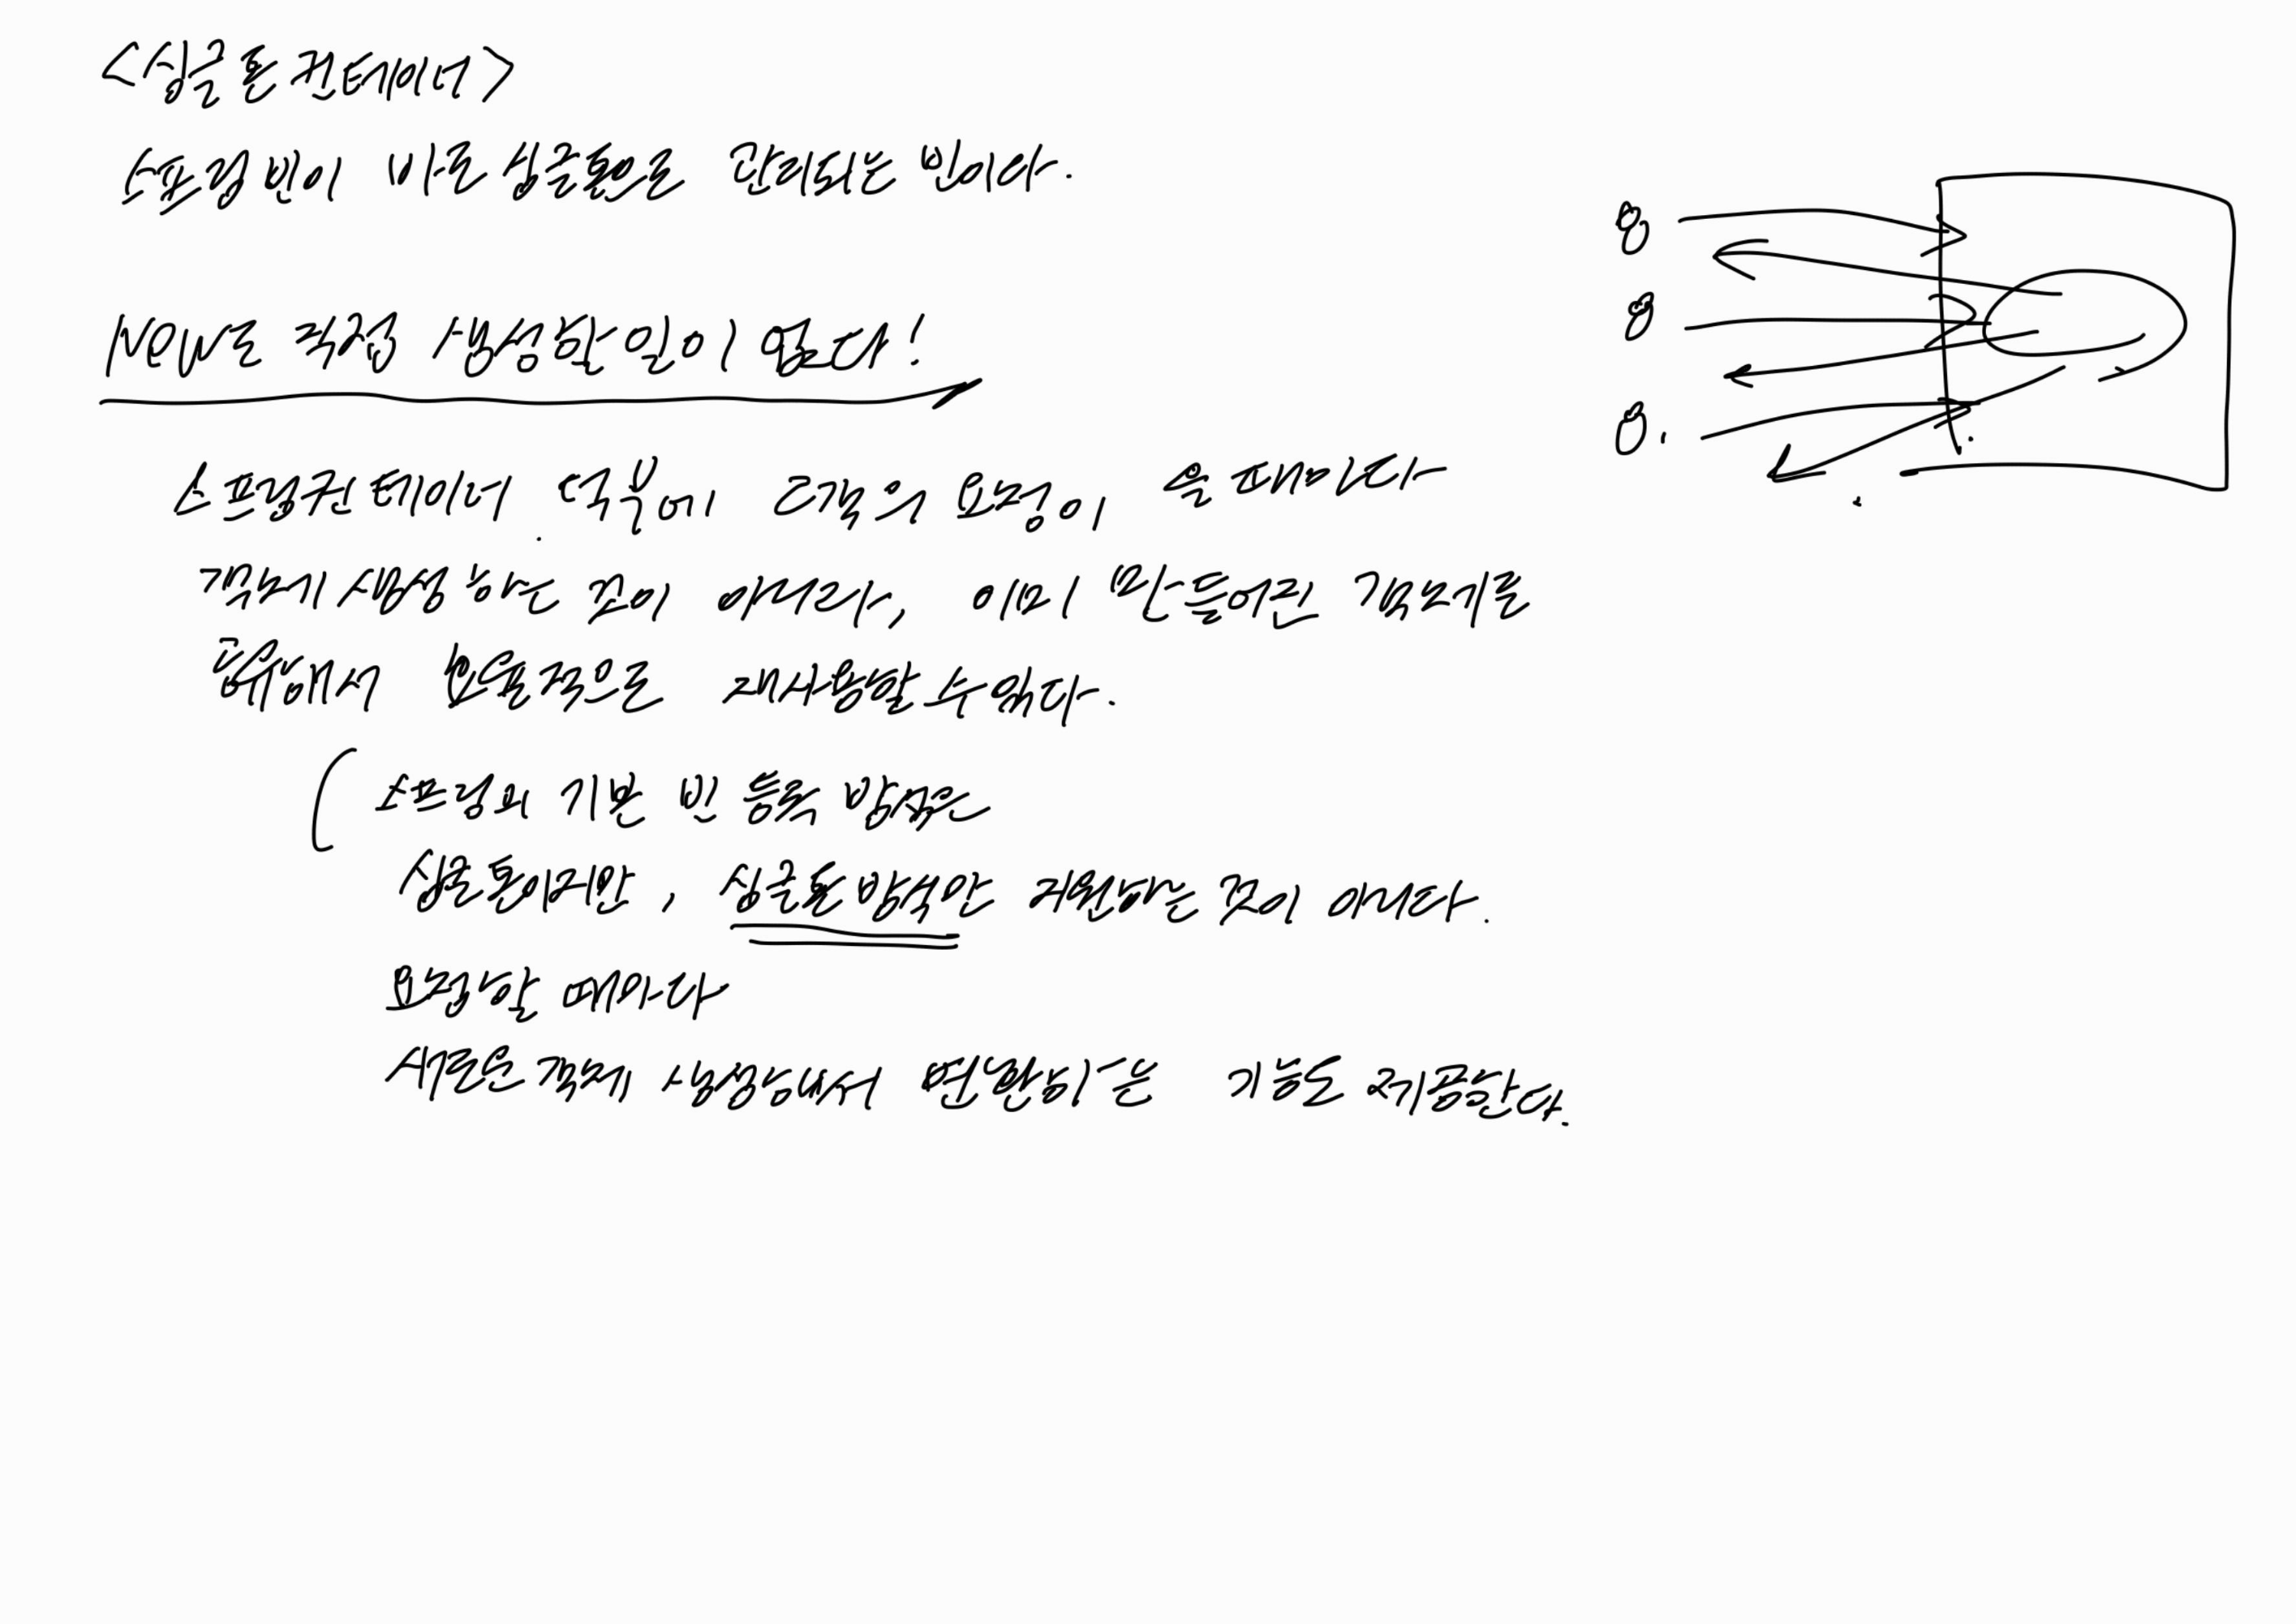 <싱글톤 컨테이너>
스프링 빈이 바로 싱글톤으로 관리되는 빈이다.
new로 직접 생성할 일이 없다!
스프링컨테이너 덕분에 고객의 요청이 올 때마다
객체 생성하는 것이 아니라, 이미 만들어진 객체를
공유해서 효율적으로 재사용할 수 있다.
( 스프링의 기본 빈 등록 방식은
싱글톤이지만, 싱글톤 방식만 지원하는 것이 아니다.
요청할 때마다
새로운 객체 생성해서 반환하는 기능도 제공한다.